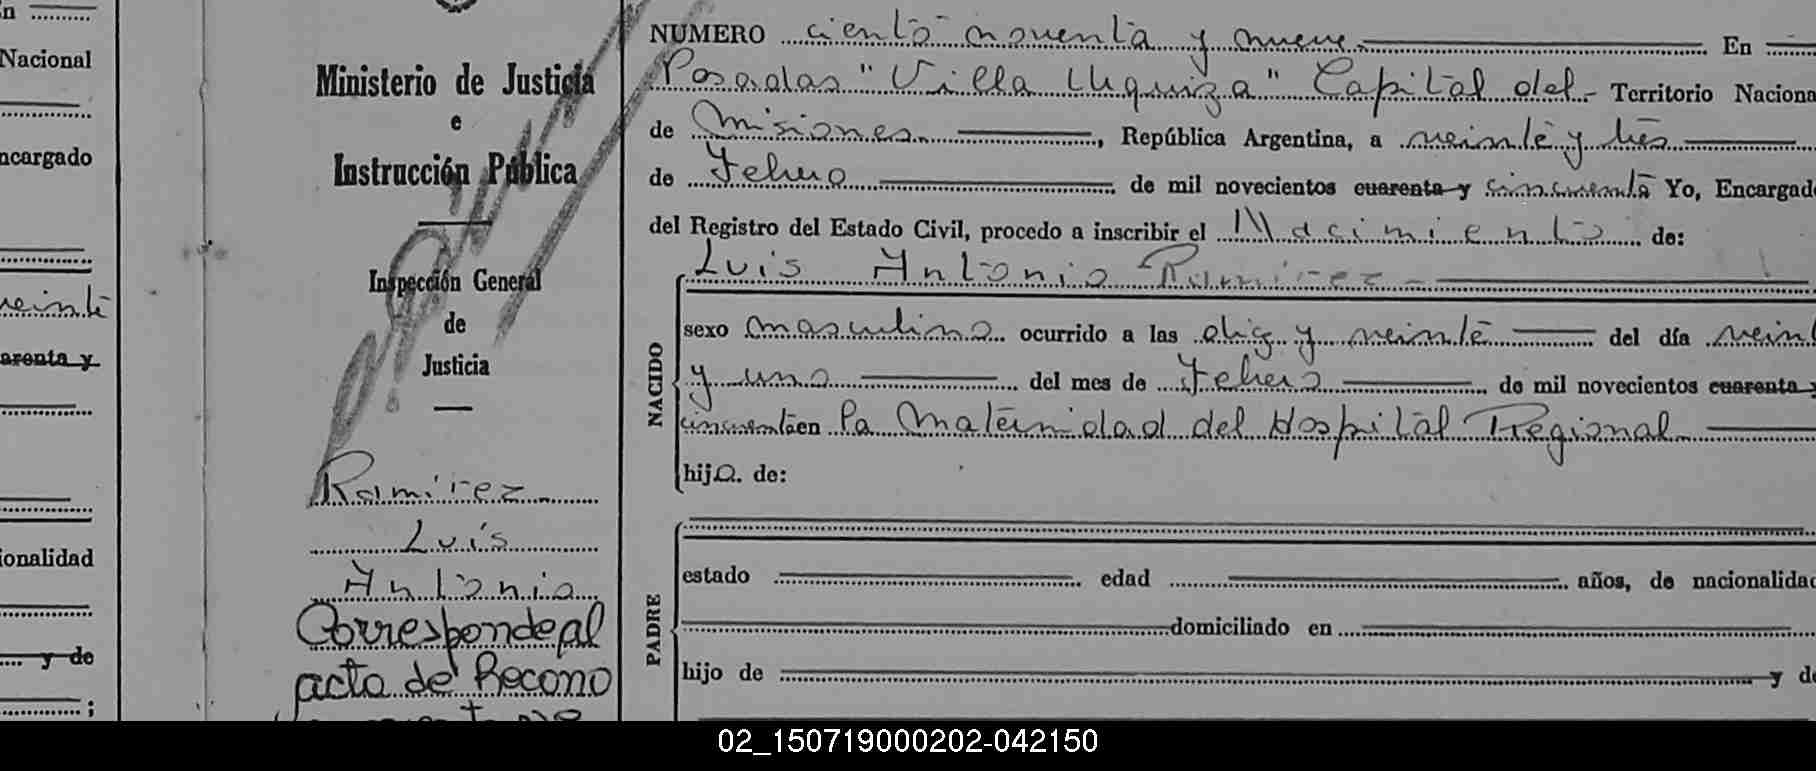 n
Nacional
ncargado
veinte
arenta y
ionalidad
y de
;
Ministerio de Justicia
e
Instrucción Pública
Inspección General
de
Justicia
Ramirez
Luis
Antonio
Corresponde al
acta de Recono
NUMERO ciento noventa y nueve. En
Posadas "Villa Urquiza" Capital del Territorio Naciona
de Misiones. , República Argentina, a veinte y tres
de Febrero de mil novecientos cuarenta y cincuenta Yo, Encargad
del Registro del Estado Civil, procedo a inscribir el Nacimiento de:
Luis Antonio Ramirez
NACIDO
sexo masculino ocurrido a las diez y veinte del día vein
y uno del mes de Febrero de mil novecientos cuarenta y
cincuenta en la Maternidad del Hospital Regional
hijo de:
PADRE
estado edad años, de nacionalidad
domiciliado en
hijo de y de
02_150719000202-042150